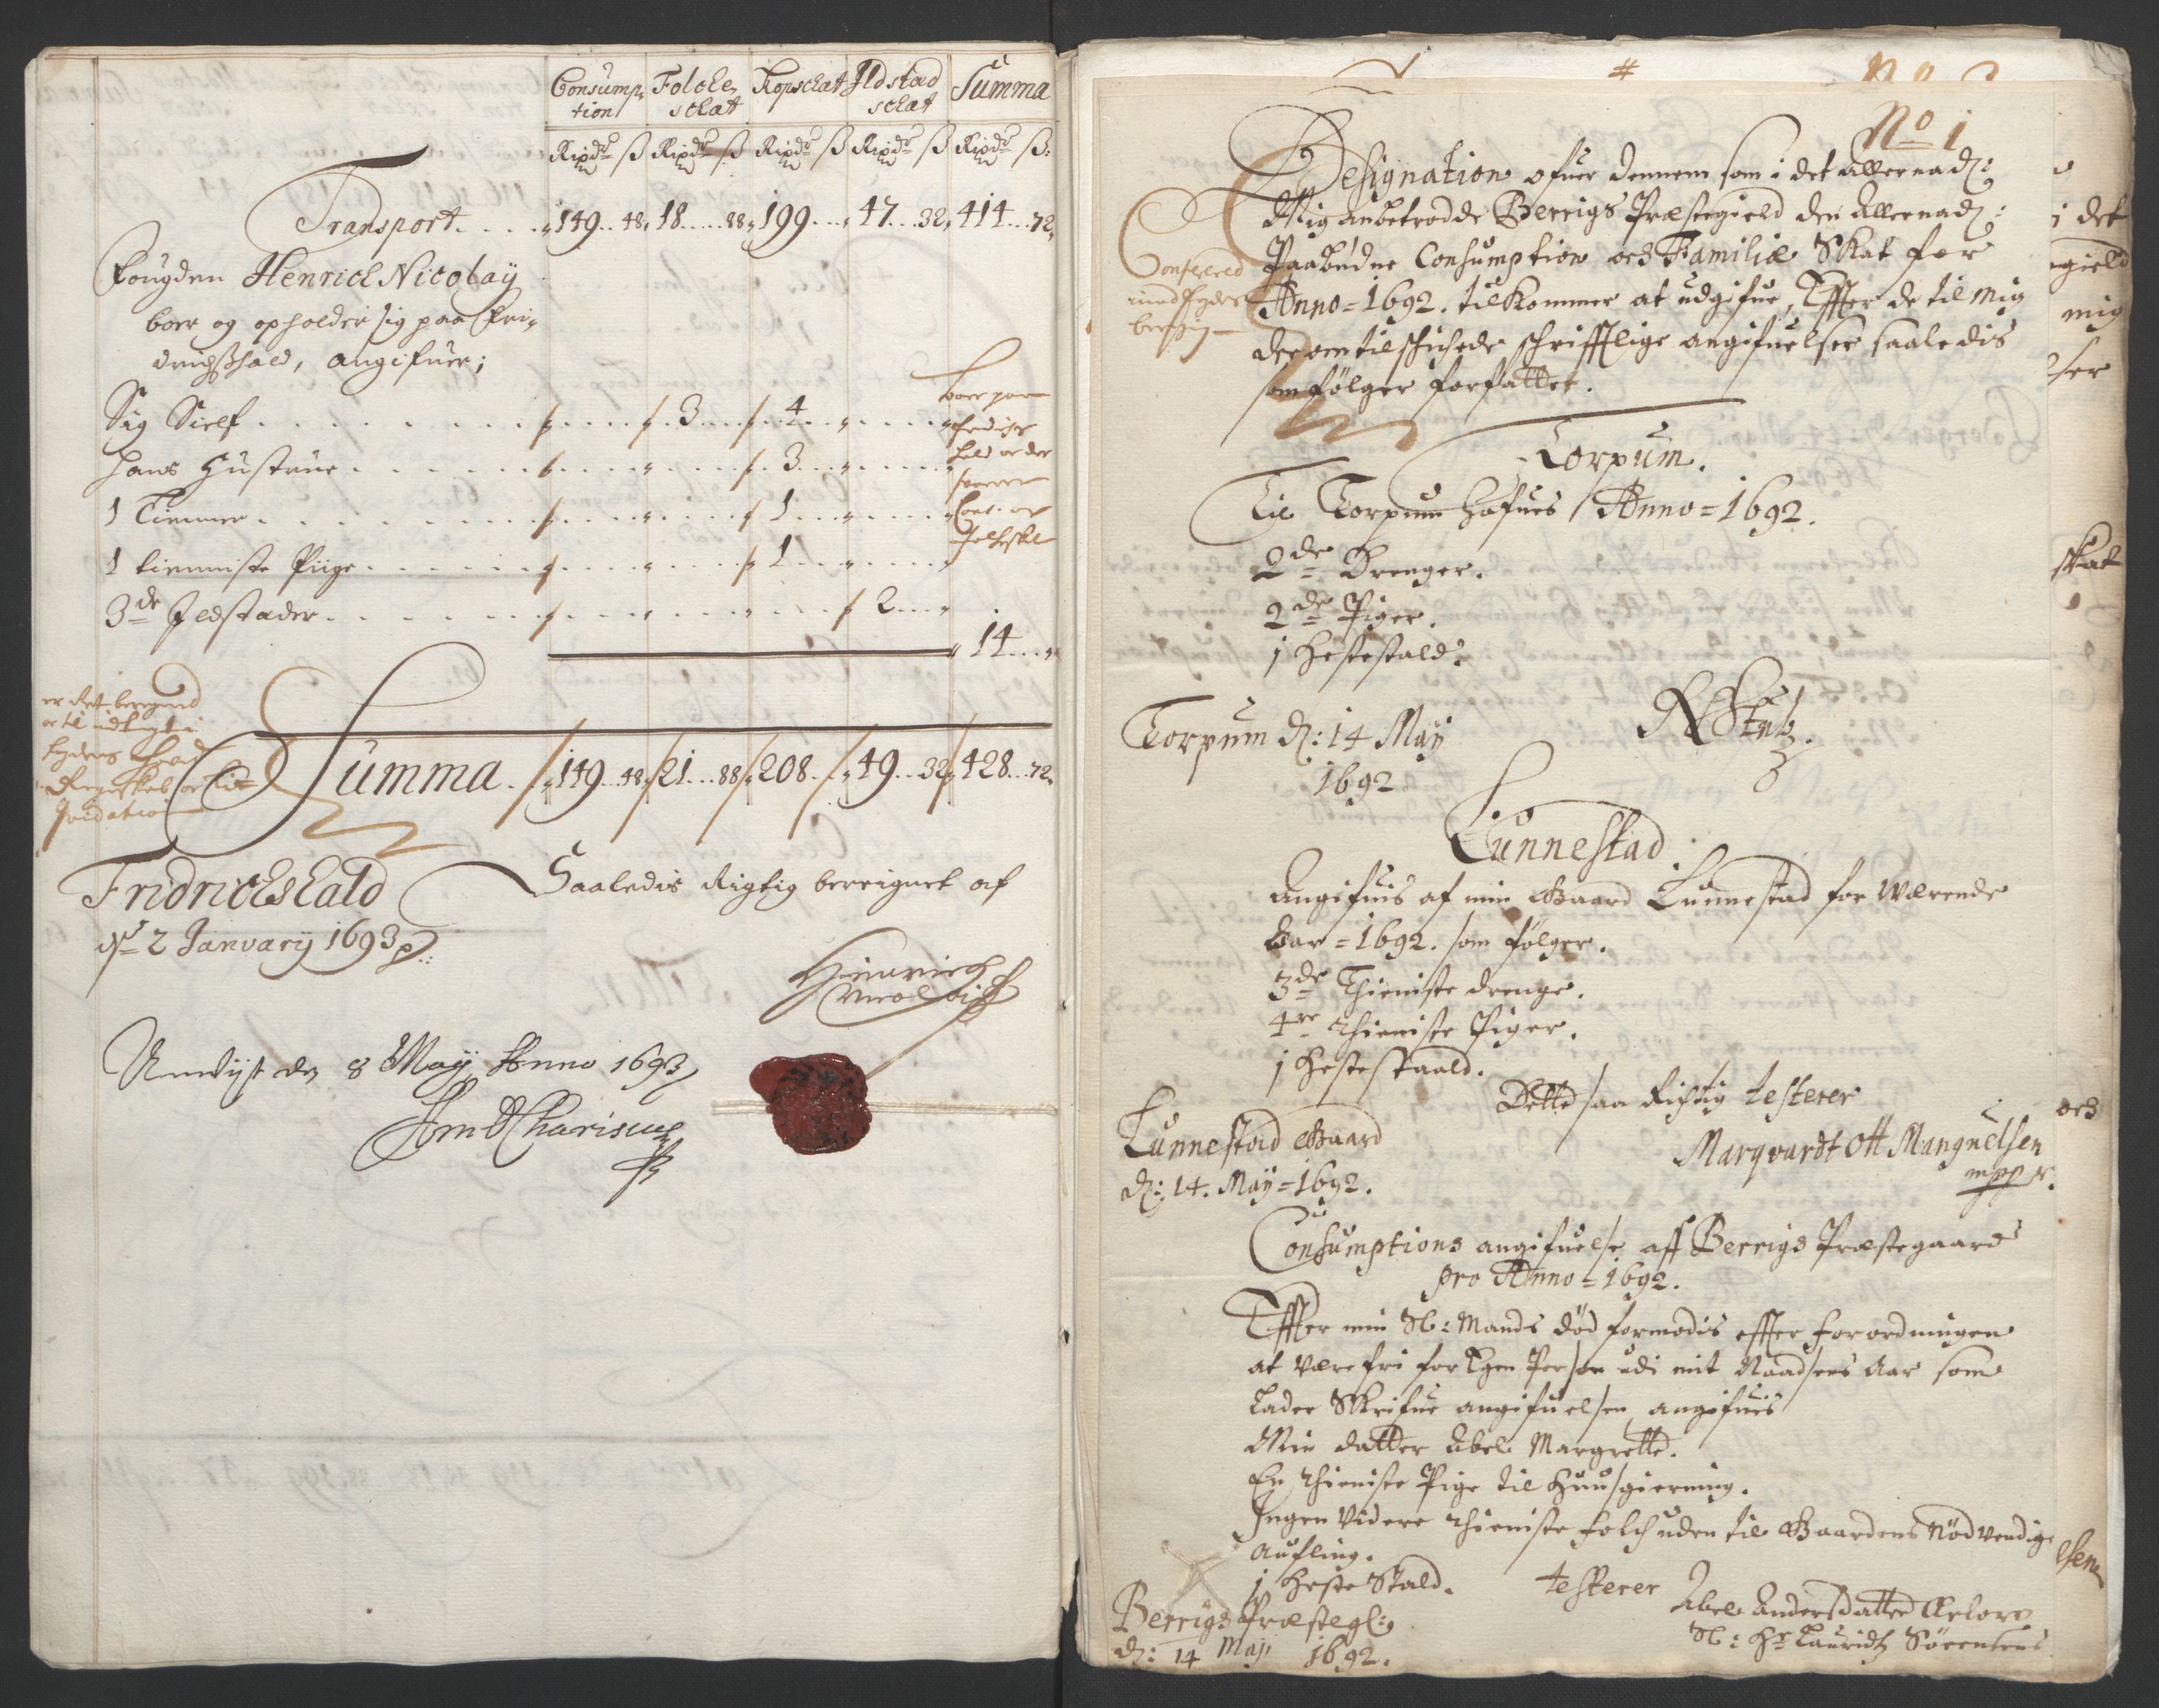 Consump- Folcke Kopschat Ildstad Summa
tion schat schat
Rixdr ß Rixdr ß Rixdr ß Rixdr ß Rixdr ß:
Transport. . . . 149 .. 48, 18 .... 88, 199 ... 47 ... 32, 414 ... 72,
Fougden Henrich Nicolay
boer og opholder sig paa Fri-
drichshald, angifuer;
Sig Sielf . . . . 3 . . . 4
hans Hustrue . . . . 3
1 Tienner . . . . 1
1 tienniste Piige . . . . 1
3de Ildstader . . . . 2
14
boer paa
er Ret beregned
Summa . 149 .. 48, 21 ... 88, 208 .. 49 .. 32, 428 ... 72,
Fridrichshald
d 2 January 1693
Saaledis Rigtig beregnet af
Hinrich
Nicolai
d 8 May Anno 1693
No 1
Designation ofuer dennem som i det allernad:
Mig anbetrodde Berrigs Præstegield den Allernad:
Paabudne Consumption och Familiæ Skat for
Anno = 1692. tilkommer at udgifue, Effter de til mig
derom tilschichede schrifftlige angifuelser saaledis
som følger forfatter.
Confererid
Torpum.
Til Torpum hafues Anno = 1692.
2de Drenger.
2de Piger.
1 Hestestald.
Torpum d: 14 May
1692
Lunnestad
Angifuis af min Gaard Lunnestad for Værende
Aar = 1692. som følger.
3de Thieniste drenge.
4re thieniste Piger.
1 Hestestaald.
Dette saa Rigtig testerer
Lunnestad Gaard
d: 14. May = 1692.
Marqvardt Ott Mangnelsen
mpp
Consumptions angifuelse aff Berrigs Præstegaard
pro Anno = 1692.
Effter min Sl: Mands død formodis effter forordningen
at være fri for Egen Person udi mit Naadsens Aar som
lader Skrifue angifuelsen, angifuis
Min datter Abel Margrette.
En thieniste Pige til Huusgierning.
Ingen Videre thieniste folch uden til Gaardens Nødvendige
aufling.
1 Heste Stald. testerer
Abel Andersdatter
Sl: Hr Lauridtz Sørensens
Berrigs Præstegl:
d: 14 Maij 1692.
i det
gield
mig
skat
och